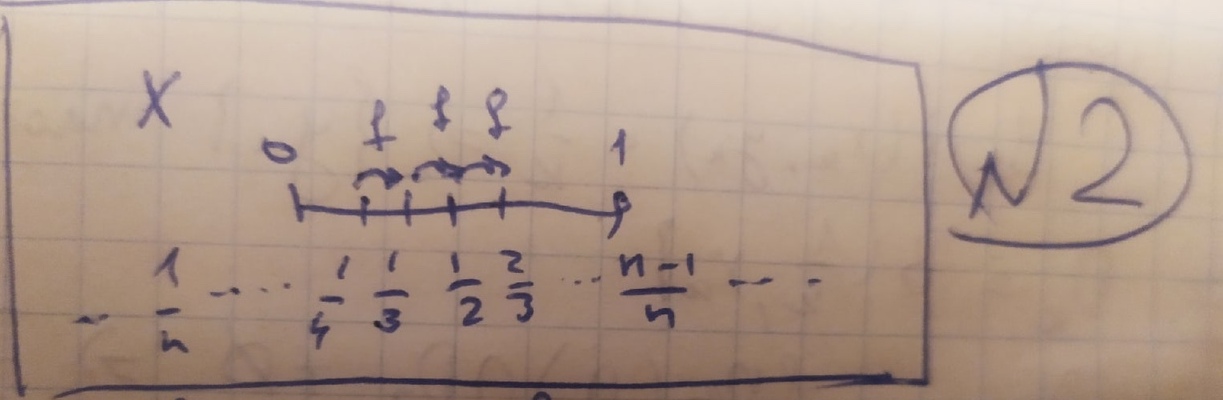 X
f f f
0 1
... 1/n ... 1/4 1/3 1/2 2/3 ... n-1/n ...
N2